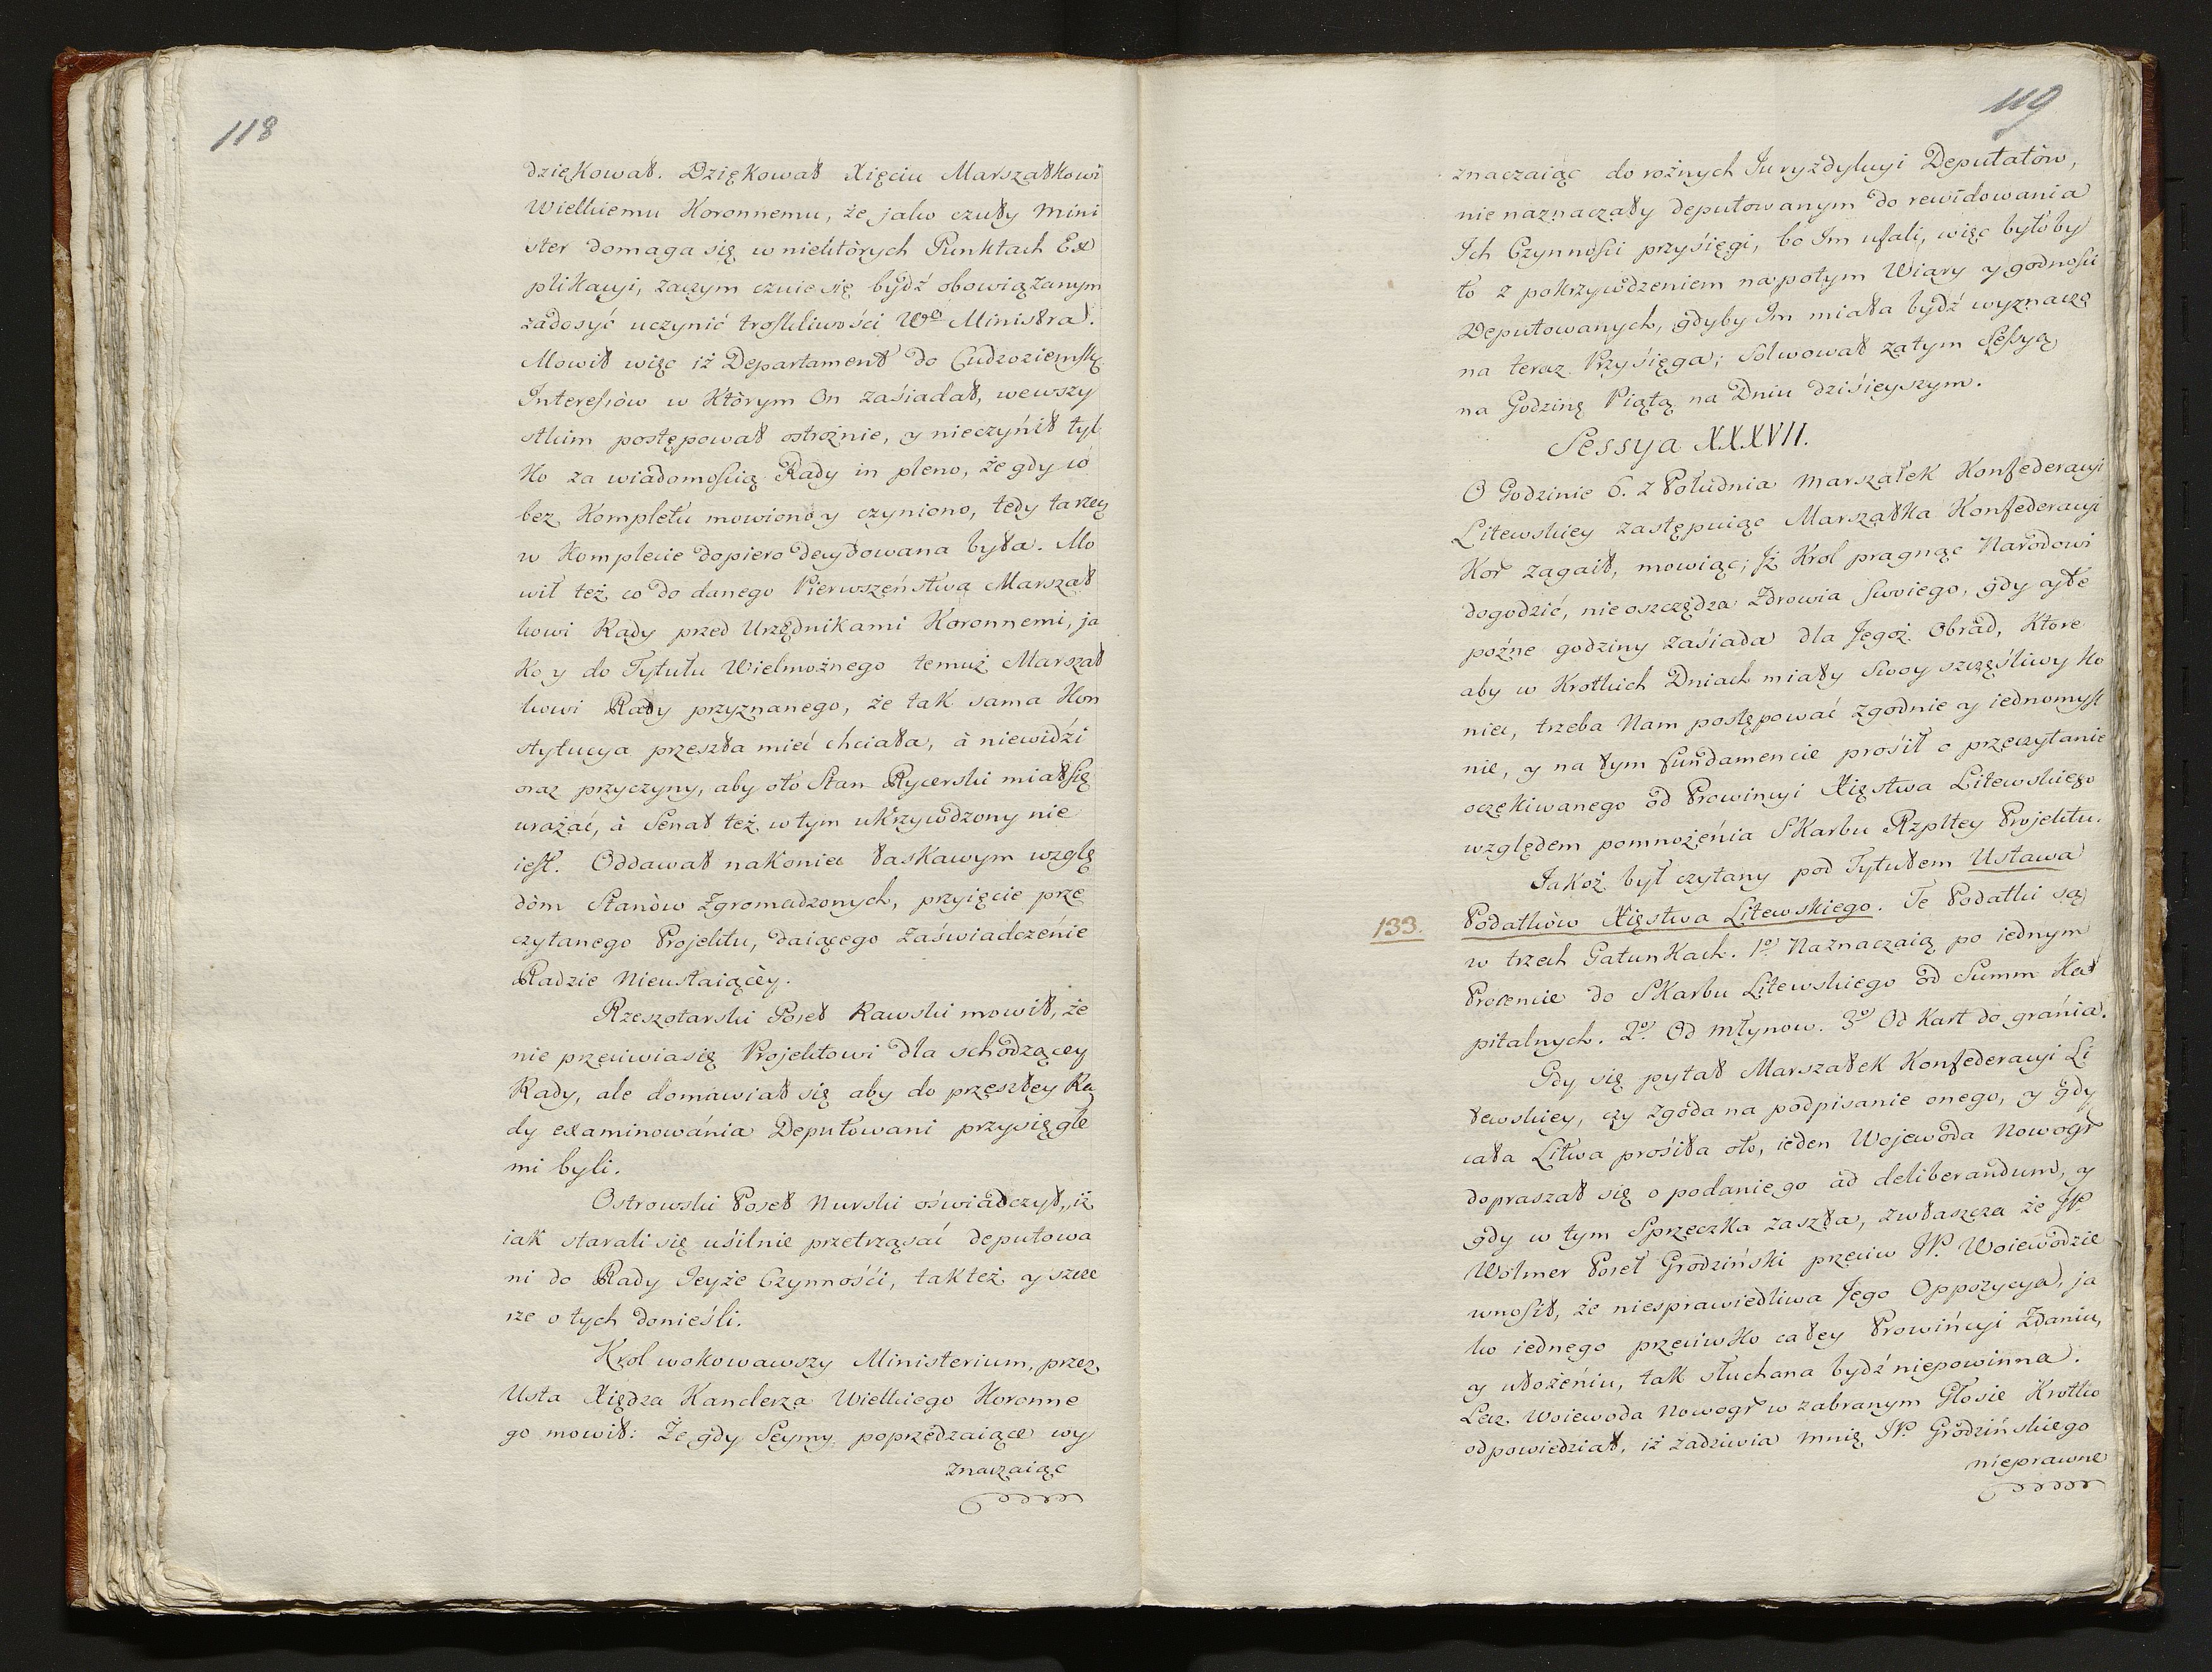 118
dziękował. Dziękował Xięciu Marszałkowi
Wielkiemu Koronnemu, że jako czuły Mini
ster domaga się w niektòrych Punktach Ex
plikacyi, zaczym czuie się bydź obowiązanym
zadosyć uczynić troskliwości Wo Ministra.
Mowił więc iż Departament do Cudzoziemsk.
Interessòw w Ktòrym On zaśiadał, wewszy
stkim postępował ostrożnie, y nieczynił tyl
ko za wiadomością Rady in pleno, że gdy co
bez Kompletu mowiono y czyniono, tedy ta rzecz
w Komplecie dopiero decydowana była. Mo
wił też co do danego Pierwszeństwa Marszał
kowi Rady przed Urzędnikami Koronnemi, ja
ko y do Tytułu Wielmożnego temuż Marszał
kowi Rady przyznanego, że tak sama Kon
stytucya przeszła mieć chciała, à niewidzi
oraz przyczyny, aby oto Stan Rycerski miał się
urażać, à Senat też w tym ukrzywdzony nie
iest. Oddawał nakoniec łaskawym wzglę
dòm Stanòw Zgromadzonych, przyięcie prze
czytanego Projektu, daiącego Zaświadczenie
Radzie Nieustaiącèy.
Rzeszotarski Poseł Rawski mowił, że
nie przeciwia się Projektowi dla schodzącey
Rady, ale domawiał się aby do przeszłey Ra
dy examinowánia Deputowani przysięgłe
mi byli.
Ostrowski Poseł Nurski oświadczył, iż
iak starali się uśilnie przetrząsać deputowa
ni do Rady Jeyże Czynnośći, tak też y szcze
rze o tych donieśli.
Krol wokowawszy Ministerium, przez
Usta Xiędza Kanclerza Wielkiego Koronne
go mowił: Że gdy Seymy poprzedzaiące wy
znaczaiąc
119
znaczaiąc do rożnych Juryzdykcyi Deputatòw,
nie naznaczały deputowanym do rewidowania
Ich Czynności przyśięgi, bo Im ufali, więc byłoby
to z pokrzywdzeniem napotym Wiary y godności
Deputowanych, gdyby Im miała bydź wyznaczo
na teraz Przyśięga; Solwował zatym Sessyą
na Godzinę Piątą na Dniu dzisieyszym.
Sessya XXXVII.
O Godzinie 6. z Południa Marszałek Konfederacyi
Litewskiey zastępuiąc Marszałka Konfederacyi
Kor zagaił, mowiąc; Iż Krol pragnąc Narodowi
dogodzić, nie oszczędza Zdrowia Swoiego, gdy aż te
poźne godziny zaśiada dla Jegoż Obrad, Ktore
aby w Krotkich Dniach miały Swoy szczęśliwy Ko
niec, trzeba Nam postępować zgodnie y iednomyśl
nie, y na tym fundamencie prośił o przeczytanie
oczekiwanego od Prowincyi Xięstwa Litewskiego
względem pomnożeńia Skarbu Rzpltey Projektu.
Jakoż był czytany pod Tytułem Ustawa
133. Podatkòw Xięstwa Litewskiego. Te Podatki są
w trzech Gatunkach. 1o Naznaczaią po iednym
Procencie do Skarbu Litewskiego od Summ Ka
pitalnych. 2o Od młynow. 3o Od Kart do gránia.
Gdy się pytał Marszałek Konfederacyi Li
tewskiey, czy Zgoda na podpisanie onego, y gdy
cała Litwa prośiła oto, ieden Wojewoda Nowogr
dopraszał się o podanie go ad deliberandum, y
gdy w tym Sprzeczka zaszła, zwłaszcza że JP.
Wolmer Poseł Grodziński przeciw JP. Woiewodzie
wnosił, że niesprawiedliwa Jego Oppozycya, ja
ko iednego przeciwko całey Prowińcyi Zdaniu,
y ułożéniu, tak słuchana bydź niepowinna.
Lecz Woiewoda Nowogr w zabranym Głosie Krotko
odpowiedział, iż zadziwia mnię JP. Grodzińskiego
nieprawne